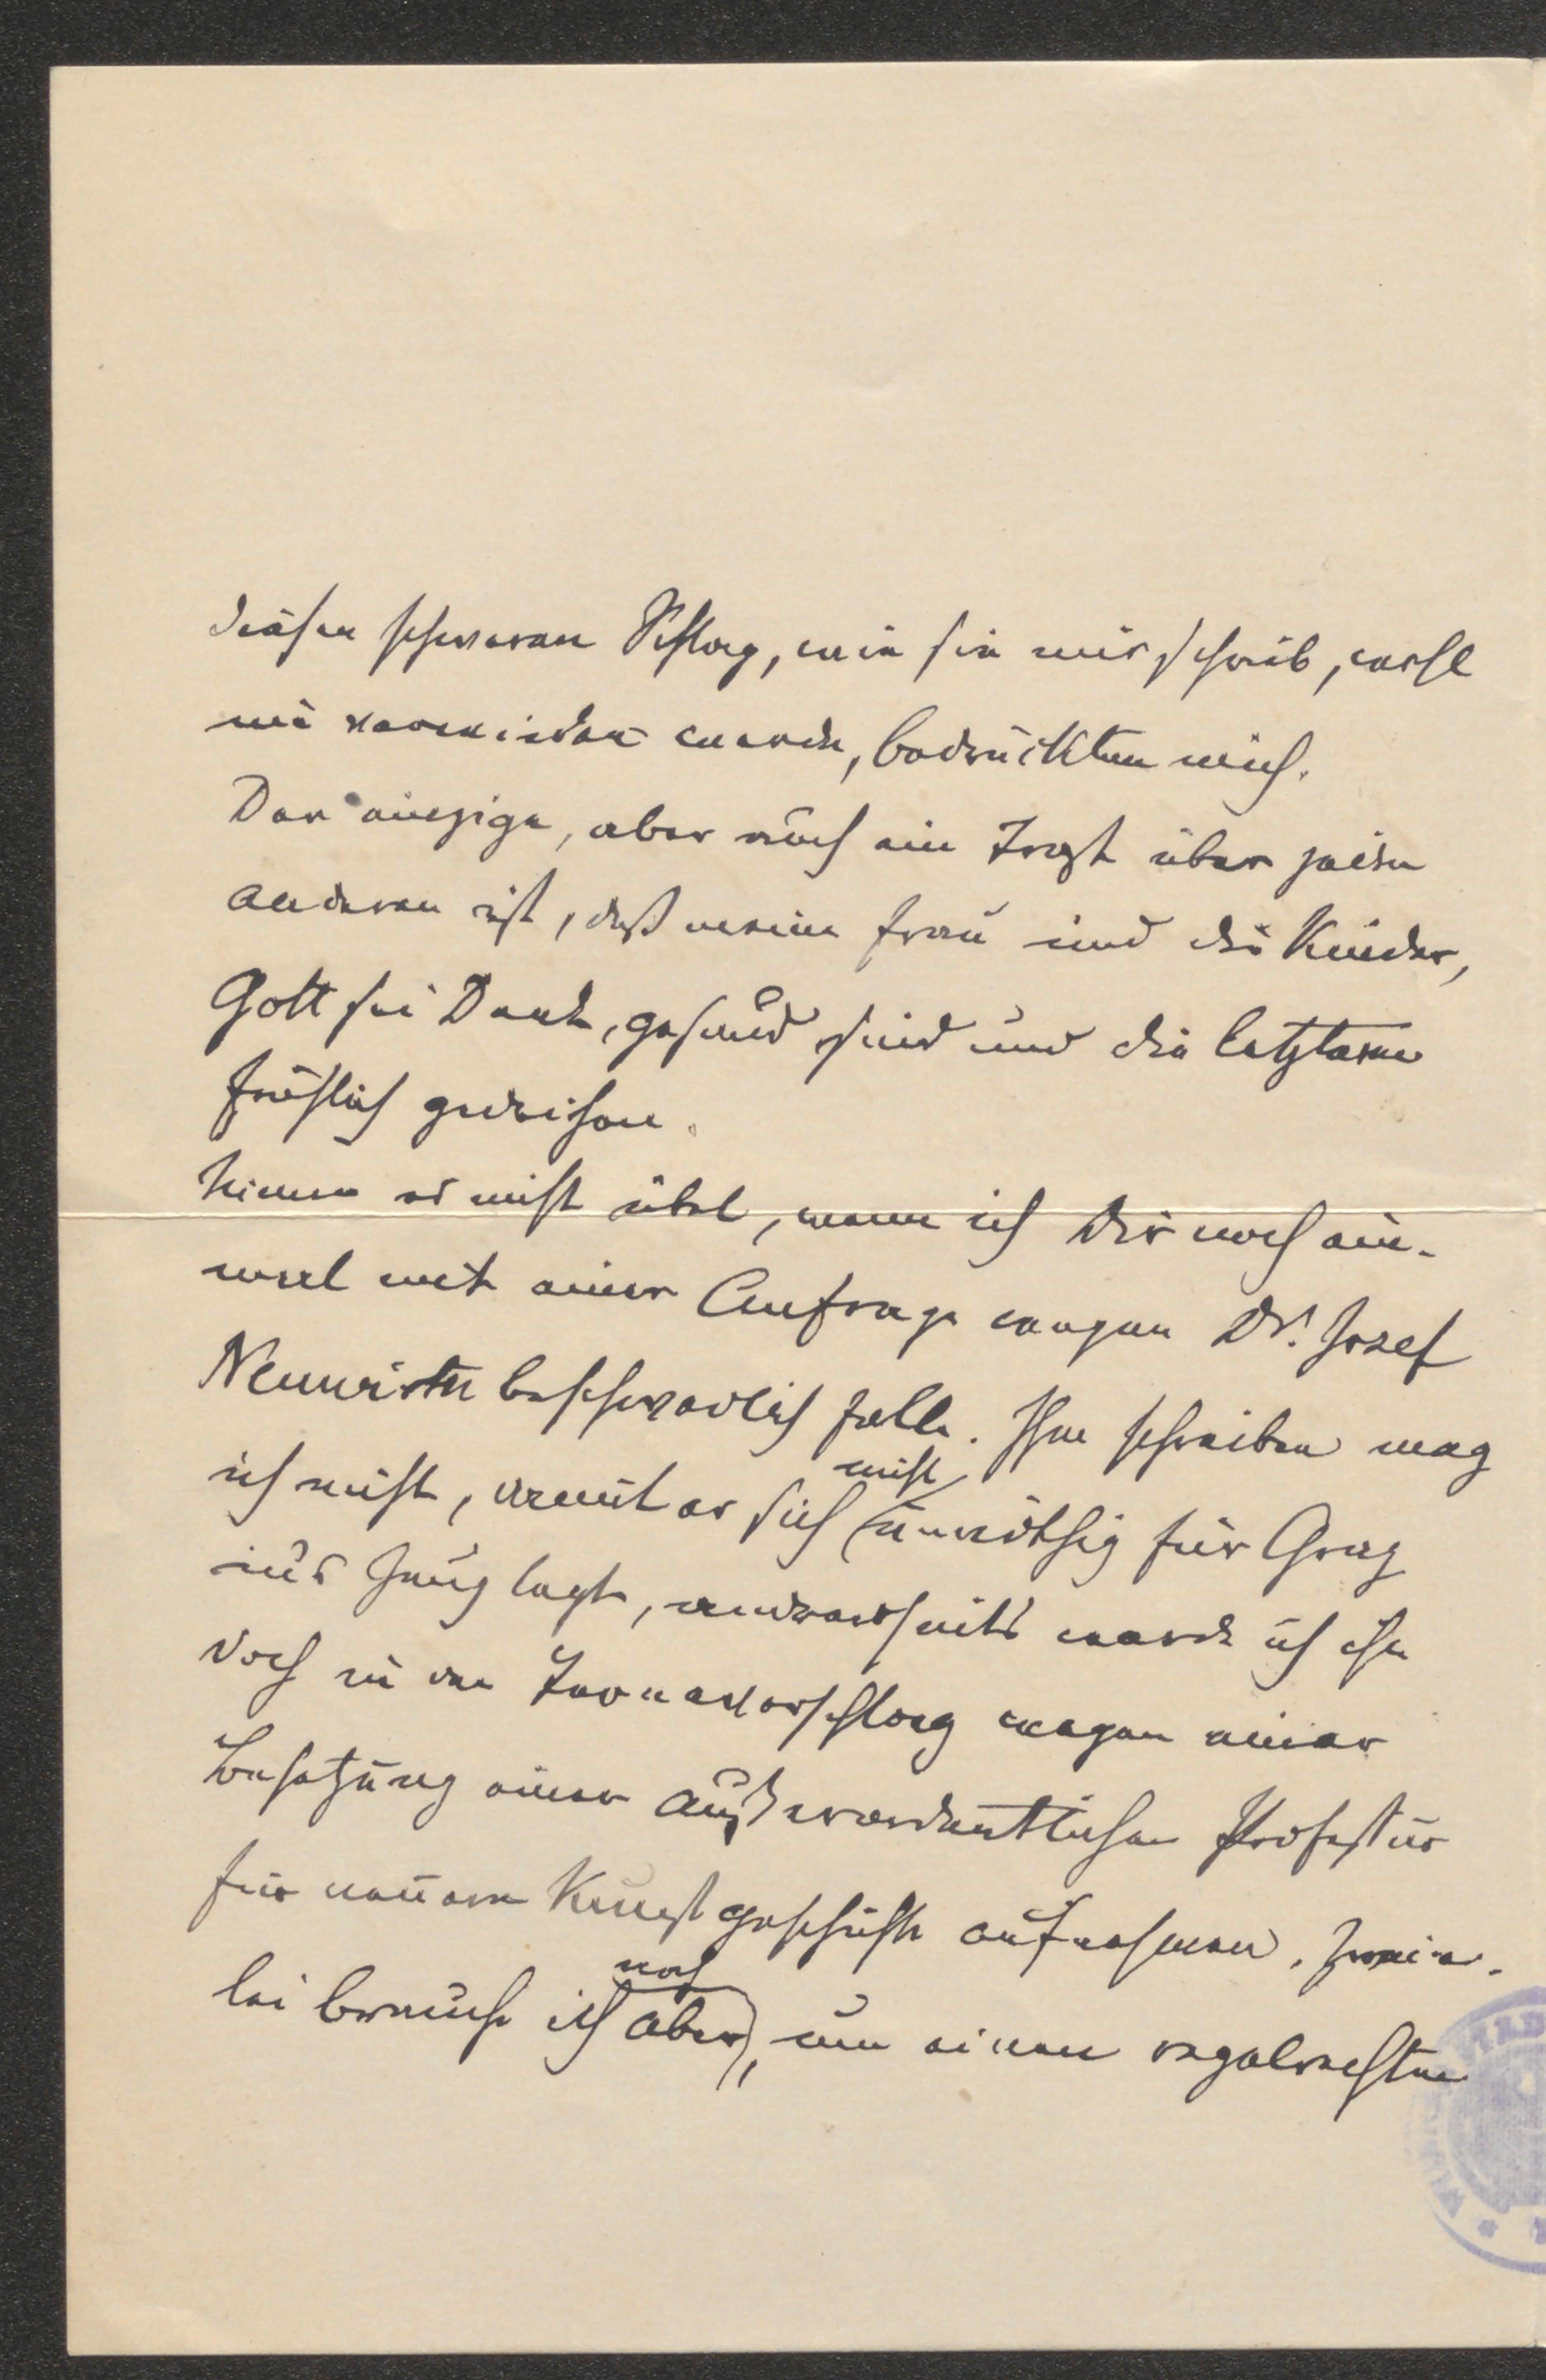 diesen schweren Schlag, wie sie mir schrieb, wohl
nie verwinden werde, bedrückten mich.
Der einzige, aber auch ein Trost über jeden
anderen ist, daß meine Frau und die Kinder,
Gott sei Dank, gesund sind und die letzteren
fröhlich gedeihen.
Nimm es nicht übel, wenn ich Dir noch ein-
mal mit einer Anfrage wegen Dr. Josef
Neuwirth beschwerlich falle. Ihm schreiben mag
ich nicht, damit er sich nicht unnöthig für Graz
ins Zeug legt, anderseits werde ich ihn
doch in den Ternavorschlag wegen einer
Besetzung einer außerordentlichen Professur
für neuere Kunstgeschichte aufnehmen. Zweier-
lei brauche ich aber noch, um einen regelrechten
WIENER STAD